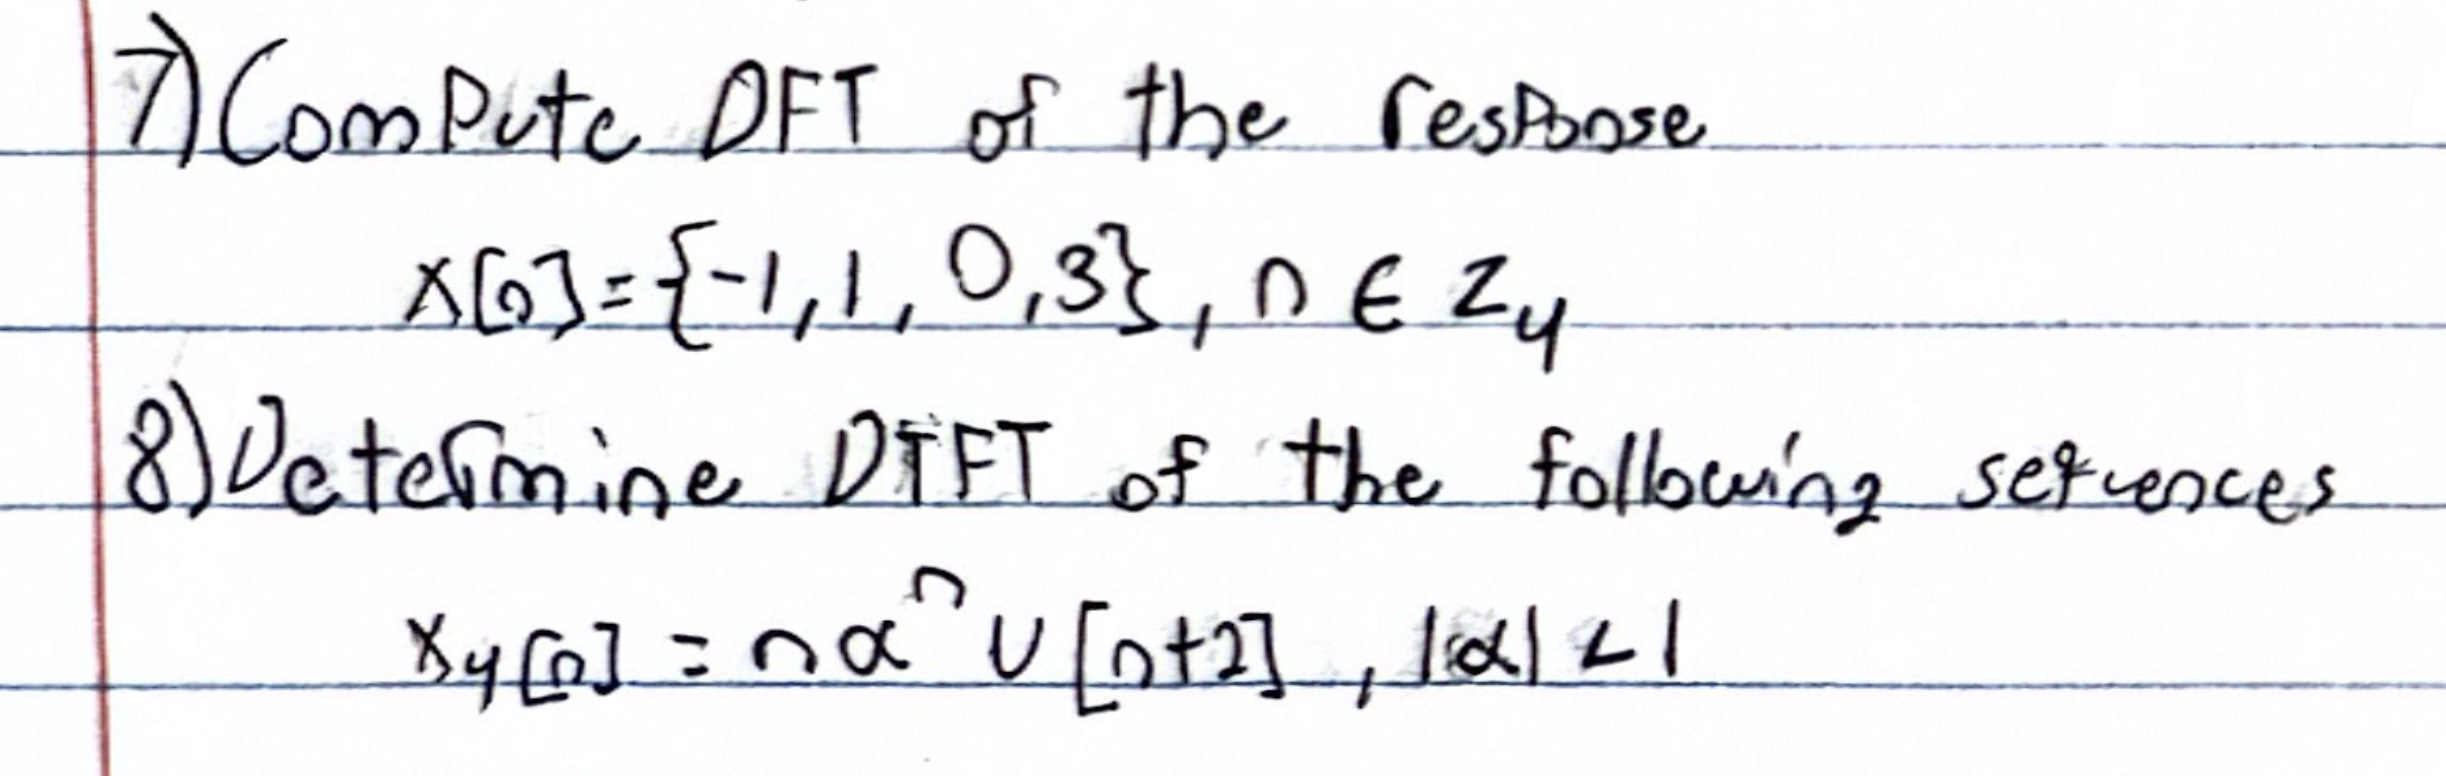 7) Compute DFT of the response
x[n]={-1,1,0,3}, n ∈ Z₄
8) Determine DTFT of the following sequences
x₄[n] = nαⁿ u[n+2], |α| < 1